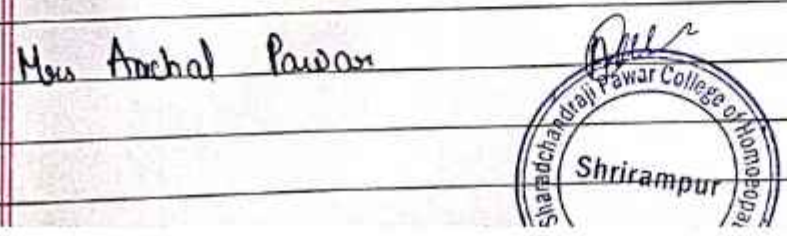 Mrs Aachal Pawar
Sharadchandraji Pawar College of Homoeopa
Shrirampur